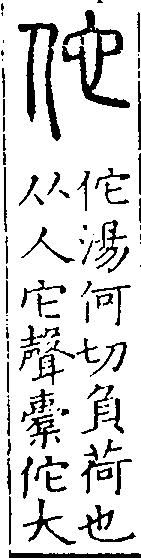 佗
佗湯何切負荷也
从人它聲橐佗大